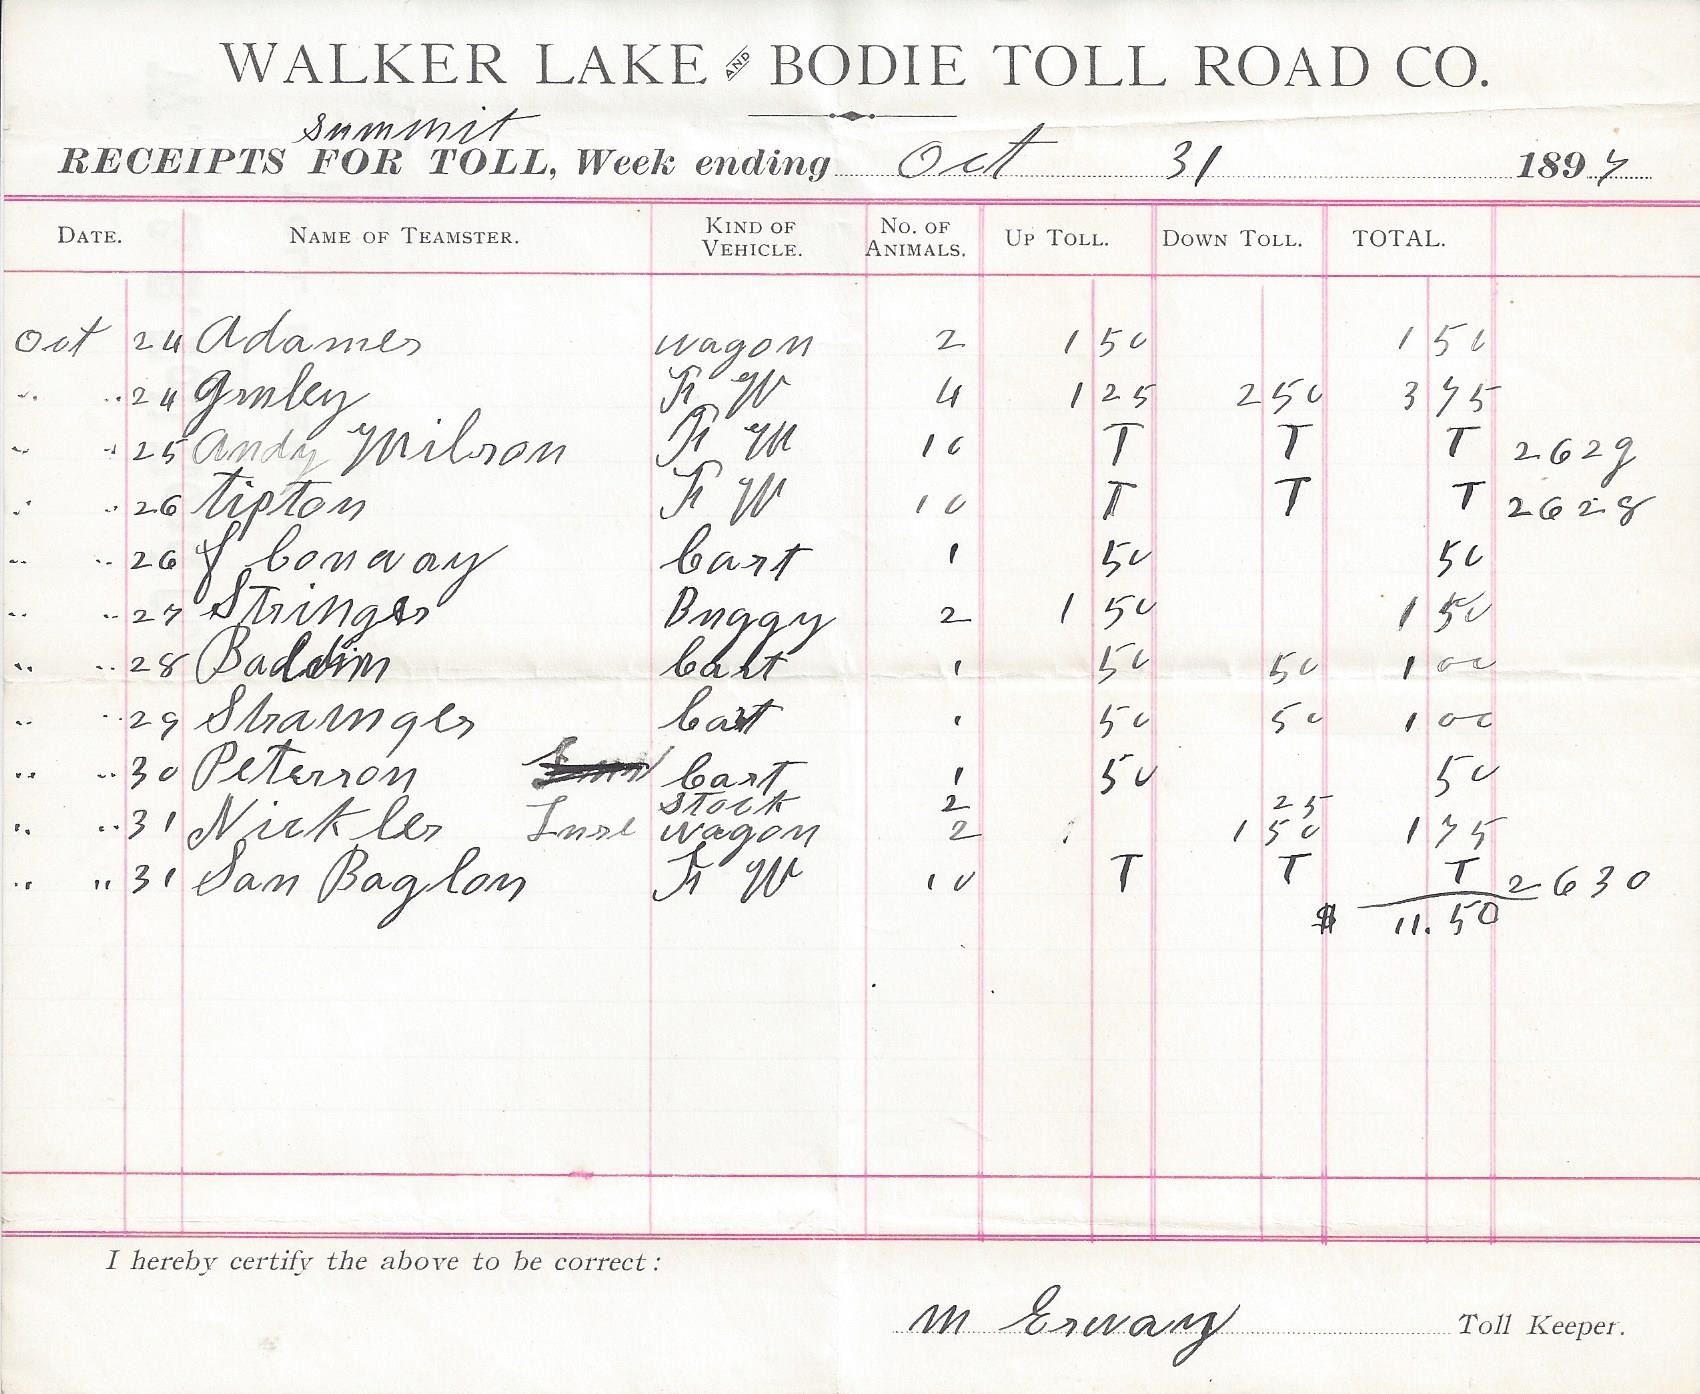 WALKER LAKE AND BODIE TOLL ROAD CO.
Summit
RECEIPTS FOR TOLL, Week ending Oct 31 1897
DATE. NAME OF TEAMSTER. KIND OF VEHICLE. NO. OF ANIMALS. UP TOLL. DOWN TOLL. TOTAL.
Oct 24 Adames wagon 2 1 50 1 50
" " 24 Fr W 4 1 25 2 50 3 75
" " 25 Andy Milson Fr W 10 T T T 2629
" " 26 tipton Fr W 10 T T T 2628
" " 26 J Conway Cart 1 50 50
" " 27 Stringer Buggy 2 1 50 1 50
" " 28 Cart 1 50 50 1 00
" " 29 Stranger Cart 1 50 50 1 00
" " 30 Peterson Cart 1 50 50
Stock 2 25
" " 31 Nickles wagon 2 1 50 1 75
" " 31 San Baglon Fr W 10 T T T 2630
$ 11.50
I hereby certify the above to be correct:
M Erway Toll Keeper.